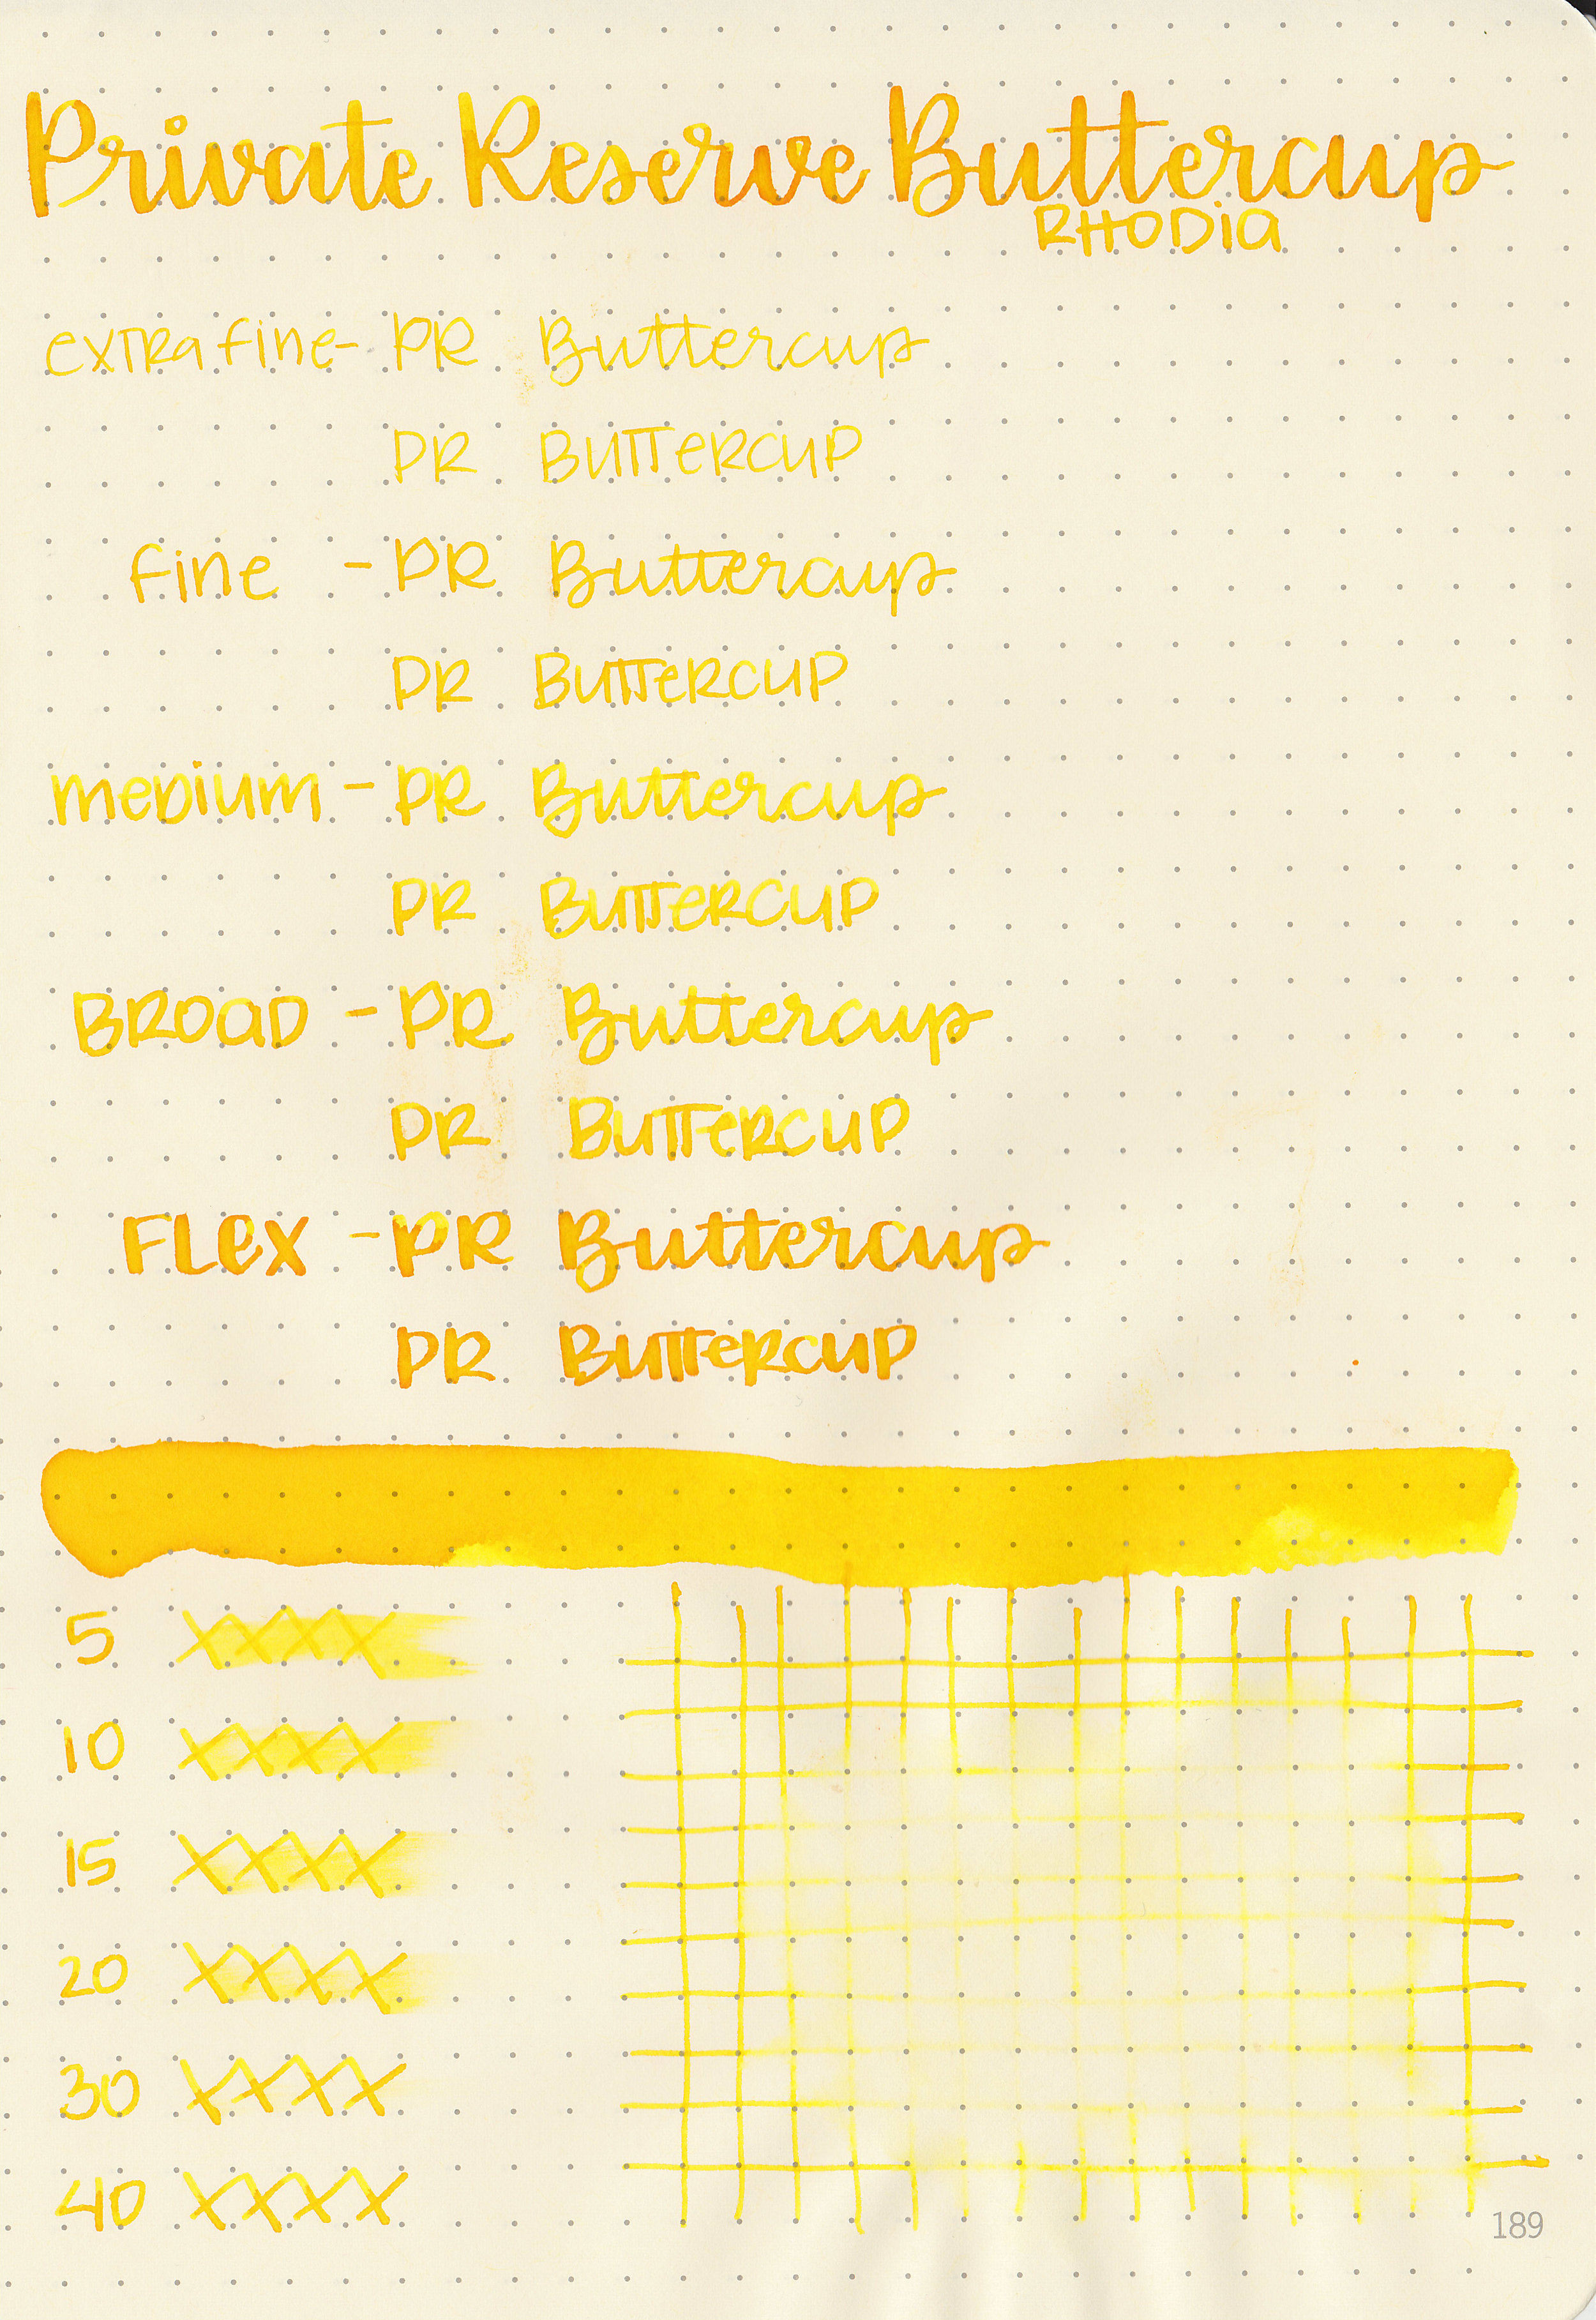 Private Reserve Buttercup
RHODia
exTRa fine - PR Buttercup
PR BuTTeRCuP
fine - PR Buttercup
PR BuTTeRCuP
meDium - PR Buttercup
PR BuTTeRCuP
BROaD - PR Buttercup
PR BuTTeRCuP
FLex - PR Buttercup
PR BuTTeRCuP
5 XXXX
10 XXXX
15 XXXX
20 XXXX
30 XXXX
40 XXXX
189